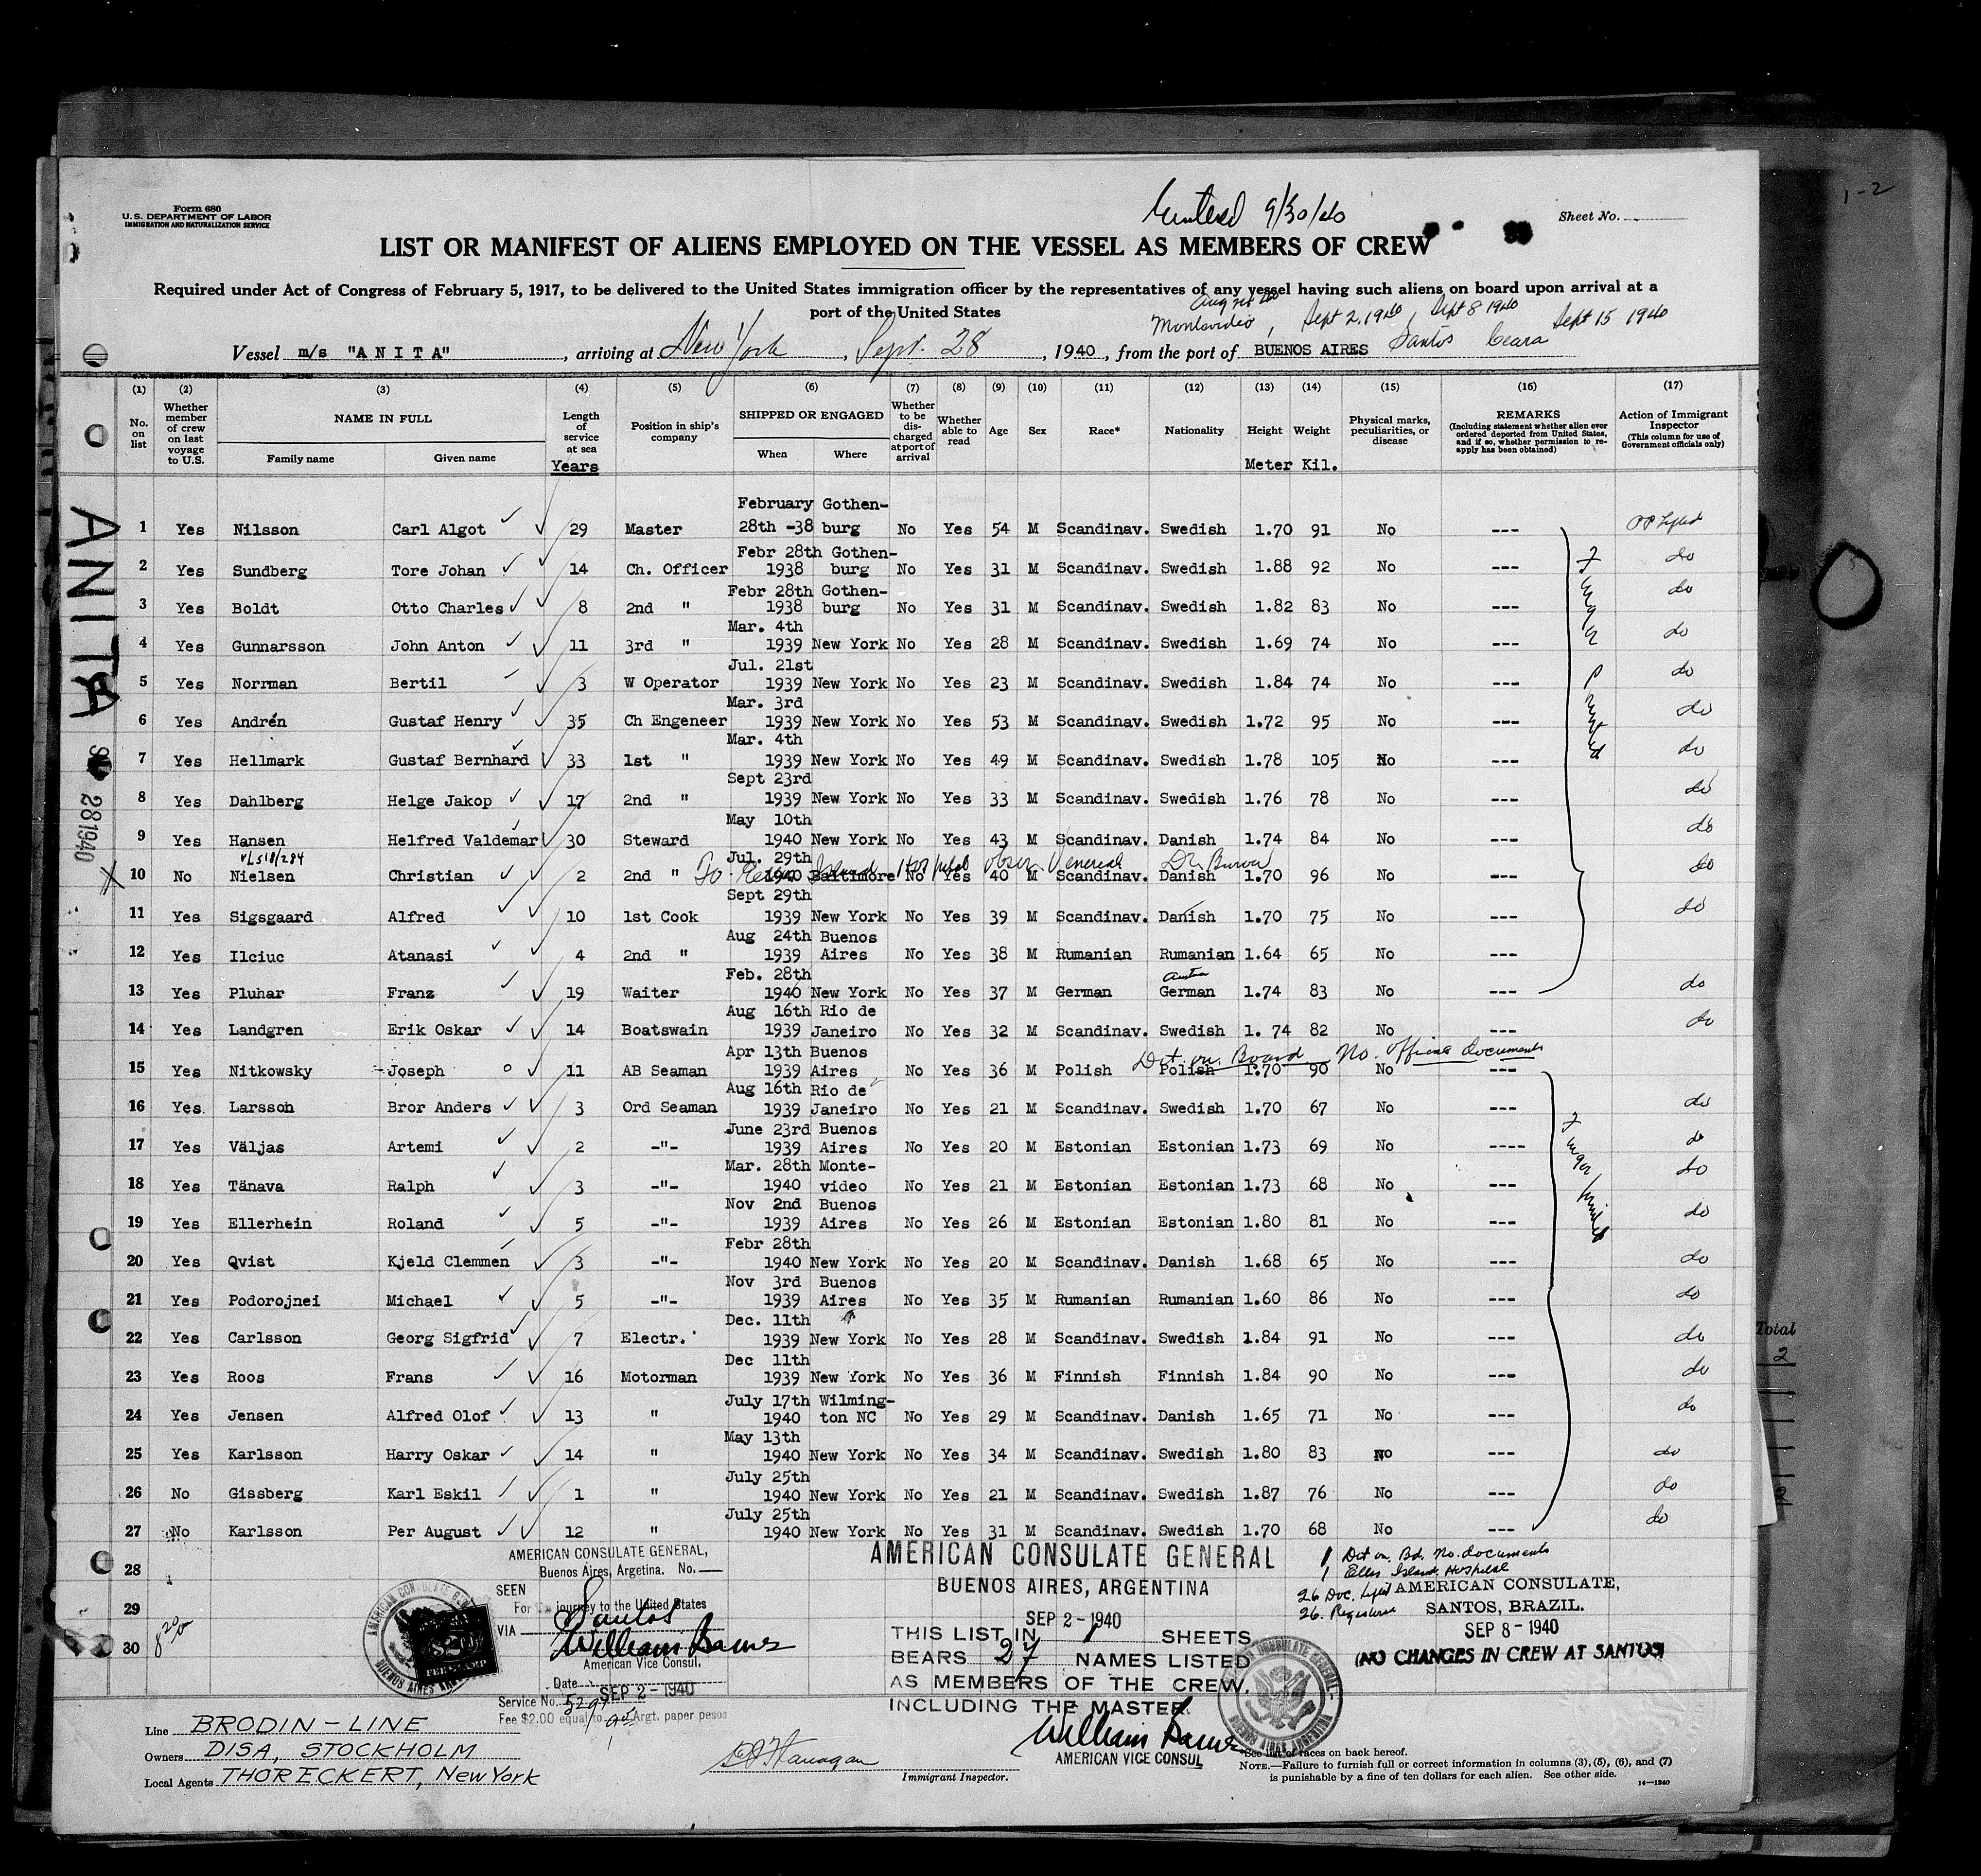 1-2
Form 680
U. S. DEPARTMENT OF LABOR
IMMIGRATION AND NATURALIZATION SERVICE
Entered 9/30/40
Sheet No.
LIST OR MANIFEST OF ALIENS EMPLOYED ON THE VESSEL AS MEMBERS OF CREW
Required under Act of Congress of February 5, 1917, to be delivered to the United States immigration officer by the representatives of any vessel having such aliens on board upon arrival at a
port of the United States
Montevideo, Sept 2, 1940, Sept 8 1940 Sept 15 1940
Vessel m/s "ANITA", arriving at New York, Sept. 28, 1940, from the port of BUENOS AIRES Santos Ceara
(1) (2) (3) (4) (5) (6) (7) (8) (9) (10) (11) (12) (13) (14) (15) (16) (17)
No. on list
Whether member of crew on last voyage to U.S.
NAME IN FULL
Family name
Given name
Length of service at sea
Years
Position in ship's company
SHIPPED OR ENGAGED
When
Where
Whether to be discharged at port of arrival
Whether able to read
Age
Sex
Race*
Nationality
Height
Meter
Weight
Kil.
Physical marks, peculiarities, or disease
REMARKS
(Including statement whether alien ever ordered deported from United States, and if so, whether permission to reapply has been obtained)
Action of Immigrant Inspector
(This column for use of Government officials only)
ANITA
28 1940
February Gothen-
1 Yes Nilsson Carl Algot 29 Master 28th -38 burg No Yes 54 M Scandinav. Swedish 1.70 91 No ---
Febr 28th Gothen-
2 Yes Sundberg Tore Johan 14 Ch. Officer 1938 burg No Yes 31 M Scandinav. Swedish 1.88 92 No --- do
Febr 28th Gothen-
3 Yes Boldt Otto Charles 8 2nd " 1938 burg No Yes 31 M Scandinav. Swedish 1.82 83 No --- do
Mar. 4th
4 Yes Gunnarsson John Anton 11 3rd " 1939 New York No Yes 28 M Scandinav. Swedish 1.69 74 No --- do
Jul. 21st
5 Yes Norrman Bertil 3 W Operator 1939 New York No Yes 23 M Scandinav. Swedish 1.84 74 No --- do
Mar. 3rd
6 Yes Andrén Gustaf Henry 35 Ch Engeneer 1939 New York No Yes 53 M Scandinav. Swedish 1.72 95 No --- do
Mar. 4th
7 Yes Hellmark Gustaf Bernhard 33 1st " 1939 New York No Yes 49 M Scandinav. Swedish 1.78 105 No --- do
Sept 23rd
8 Yes Dahlberg Helge Jakop 17 2nd " 1939 New York No Yes 33 M Scandinav. Swedish 1.76 78 No --- do
May 10th
9 Yes Hansen Helfred Valdemar 30 Steward 1940 New York No Yes 43 M Scandinav. Danish 1.74 84 No --- do
Jul. 29th
10 No Nielsen Christian 2 2nd " 1940 Baltimore No Yes 40 M Scandinav. Danish 1.70 96 No --- do
To Ellis Island Hospital obser. Venereal
Sept 29th
11 Yes Sigsgaard Alfred 10 1st Cook 1939 New York No Yes 39 M Scandinav. Danish 1.70 75 No --- do
Aug 24th Buenos
12 Yes Ilciuc Atanasi 4 2nd " 1939 Aires No Yes 38 M Rumanian Rumanian 1.64 65 No ---
Feb. 28th Austria
13 Yes Pluhar Franz 19 Waiter 1940 New York No Yes 37 M German German 1.74 83 No --- do
Aug 16th Rio de
14 Yes Landgren Erik Oskar 14 Boatswain 1939 Janeiro No Yes 32 M Scandinav. Swedish 1. 74 82 No --- do
Apr 13th Buenos Det on Board No. Official documents
15 Yes Nitkowsky Joseph 11 AB Seaman 1939 Aires No Yes 36 M Polish Polish 1.70 90 No ---
Aug 16th Rio de
16 Yes. Larsson Bror Anders 3 Ord Seaman 1939 Janeiro No Yes 21 M Scandinav. Swedish 1.70 67 No --- do
June 23rd Buenos
17 Yes Väljas Artemi 2 -"- 1939 Aires No Yes 20 M Estonian Estonian 1.73 69 No ---- do
Mar. 28th Monte-
18 Yes Tänava Ralph 3 -"- 1940 video No Yes 21 M Estonian Estonian 1.73 68 No --- do
Nov 2nd Buenos
19 Yes Ellerhein Roland 5 -"- 1939 Aires No Yes 26 M Estonian Estonian 1.80 81 No --- do
Febr 28th
20 Yes Qvist Kjeld Clemmen 3 -"- 1940 New York No Yes 20 M Scandinav. Danish 1.68 65 No --- do
Nov 3rd Buenos
21 Yes Podorojnei Michael 5 -"- 1939 Aires No Yes 35 M Rumanian Rumanian 1.60 86 No --- do
Dec. 11th
22 Yes Carlsson Georg Sigfrid 7 Electr. 1939 New York No Yes 28 M Scandinav. Swedish 1.84 91 No --- do
Dec 11th
23 Yes Roos Frans 16 Motorman 1939 New York No Yes 36 M Finnish Finnish 1.84 90 No --- do
July 17th Wilming-
24 Yes Jensen Alfred Olof 13 " 1940 ton NC No Yes 29 M Scandinav. Danish 1.65 71 No --- do
May 13th
25 Yes Karlsson Harry Oskar 14 " 1940 New York No Yes 34 M Scandinav. Swedish 1.80 83 No --- do
July 25th
26 No Gissberg Karl Eskil 1 " 1940 New York No Yes 21 M Scandinav. Swedish 1.87 76 No --- do
July 25th
27 No Karlsson Per August 12 " 1940 New York No Yes 31 M Scandinav. Swedish 1.70 68 No --- do
28
29
30
Finger Printed
Finger Printed
Total
2
AMERICAN CONSULATE GENERAL,
Buenos Aires, Argetina. No.
SEEN
For the journey to the United States
VIA Santos
William Barnes
American Vice Consul.
Date SEP 2 - 1940
Service No.
Fee $2.00 equal to Argt. paper pesos
AMERICAN CONSULATE GENERAL
BUENOS AIRES, ARGENTINA
SEP 2 - 1940
THIS LIST IN 1 SHEETS
BEARS 27 NAMES LISTED
AS MEMBERS OF THE CREW,
INCLUDING THE MASTER.
William Barnes
AMERICAN VICE CONSUL
1 Det on. Bd. No. documents
1 Ellis Island Hospital
26 Doc. lifted
26. Registered
AMERICAN CONSULATE,
SANTOS, BRAZIL.
SEP 8 - 1940
(NO CHANGES IN CREW AT SANTOS)
Line BRODIN-LINE
Owners DISA, STOCKHOLM
Local Agents THOR ECKERT, New York
Immigrant Inspector.
*See list of races on back hereof.
NOTE.—Failure to furnish full or correct information in columns (3), (5), (6), and (7)
is punishable by a fine of ten dollars for each alien. See other side.
14-1240